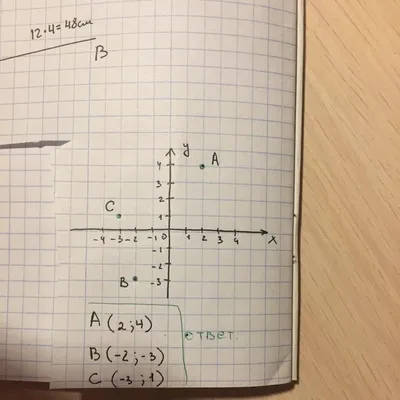 12·4=48см
B
y
4
A
3
2
C
1
-4 -3 -2 -1 0 1 2 3 4 x
-1
-2
B
-3
A (2;4)
ответ.
B (-2;-3)
C (-3;1)